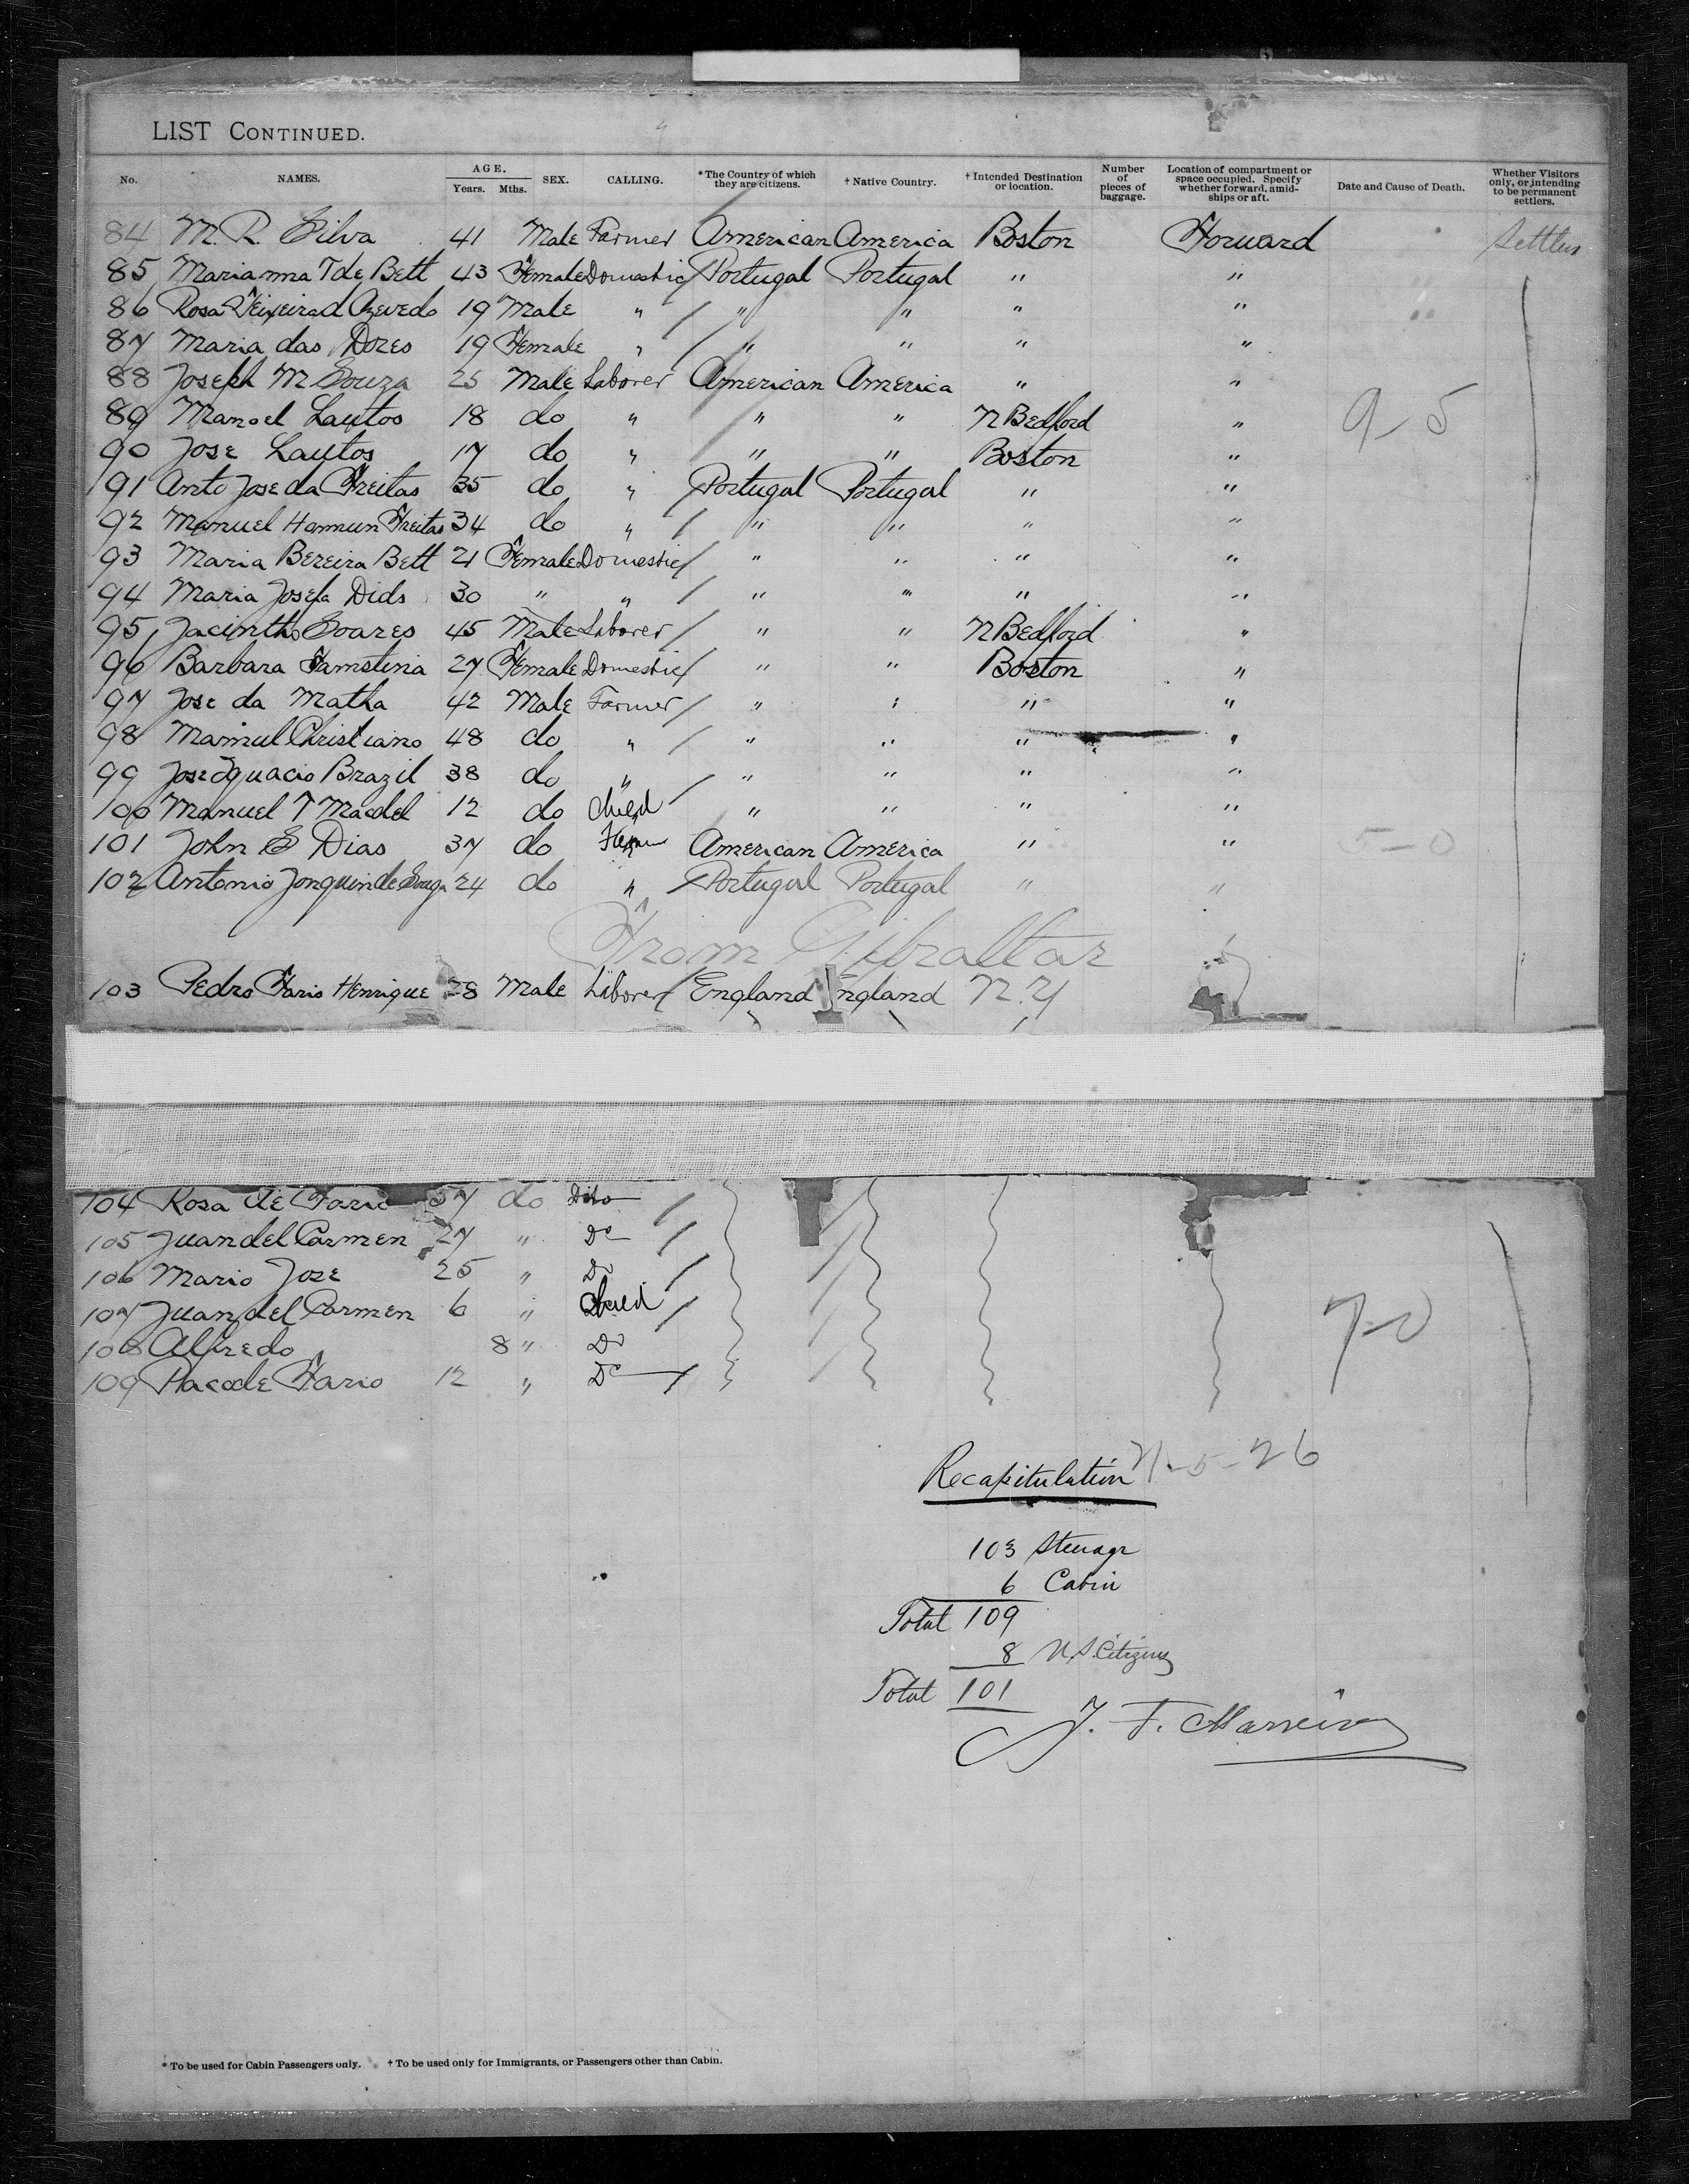 LIST CONTINUED.
No. NAMES. AGE. Years. Mths. SEX. CALLING. *The Country of which they are citizens. †Native Country. †Intended Destination or location. Number of pieces of baggage. Location of compartment or space occupied. Specify whether forward, amidships or aft. Date and Cause of Death. Whether Visitors only, or intending to be permanent settlers.
84 M. R. Silva 41 Male Farmer American America Boston Forward Settlers
85 Marianna T de Bett 43 Female Domestic Portugal Portugal " "
86 Rosa Teixeira d Azevedo 19 Male " " " " "
87 Maria das Dores 19 Female " " " " "
88 Joseph M Souza 25 Male Laborer American America " "
89 Manoel Lautos 18 do " " " N Bedford " 9-5
90 Jose Lautos 17 do " " " Boston "
91 Anto Jose da Freitas 35 do " Portugal Portugal " "
92 Manuel Freitas 34 do " " " " "
93 Maria Bereira Bett 21 Female Domestic " " " "
94 Maria Josefa Dids 30 " " " " " "
95 Jacintho Soares 45 Male Laborer " " N Bedford "
96 Barbara Famstinia 27 Female Domestic " " Boston "
97 Jose da Matha 42 Male Farmer " " " "
98 Manuel Christiano 48 do " " " " "
99 Jose Ignacio Brazil 38 do " " " " "
100 Manuel T Macdel 12 do Child " " " "
101 John S Dias 37 do Farmer American America " " 5-0
102 Antonio Jonquin de Souza 24 do " Portugal Portugal " "
From Gibraltar
103 Pedro Fario Henrique 28 Male Laborer England England N.Y
104 Rosa de Fario 57 do Ditto
105 Juan del Carmen 27 " Do
106 Mario Jose 25 " Do
107 Juan del Carmen 6 " Child 7-0
108 Alfredo 8 " Do
109 Paco de Fario 12 " Do
Recapitulation 21-5-26
103 Steerage
6 Cabin
Total 109
8 U.S. Citizens
Total 101
J. F.
* To be used for Cabin Passengers only. † To be used only for Immigrants, or Passengers other than Cabin.